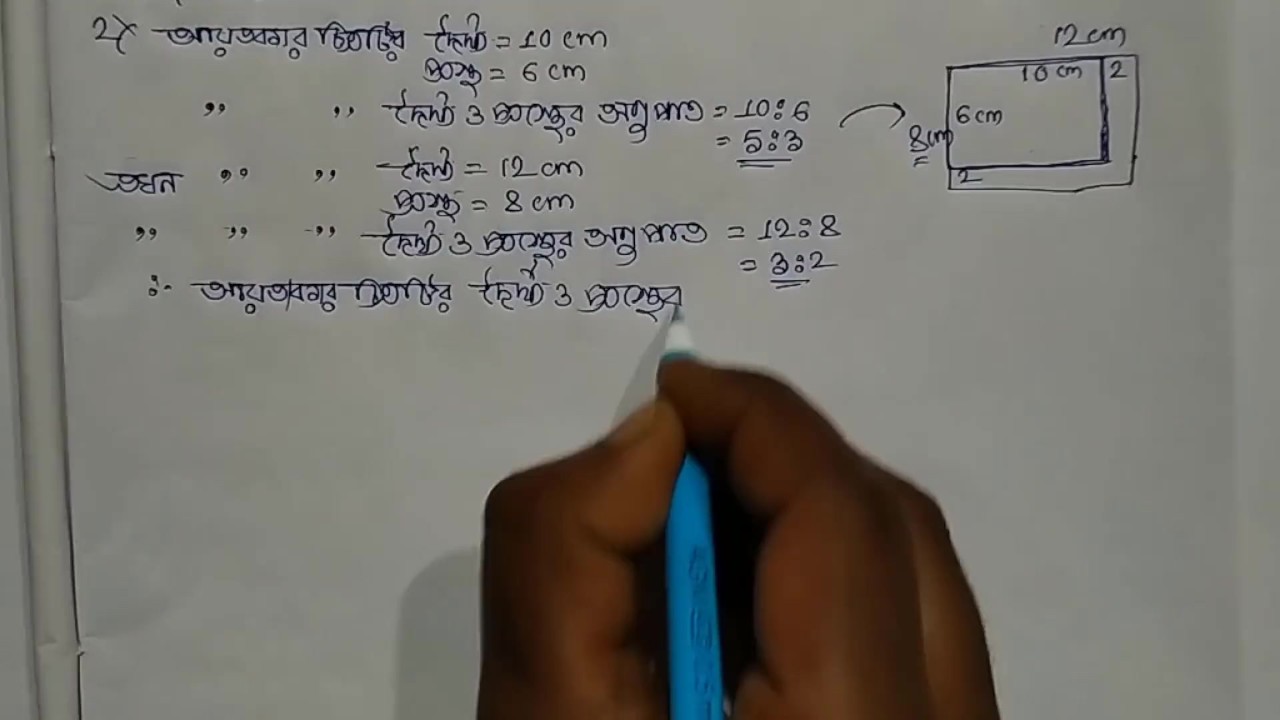 2) আয়তাকার চিত্রটির দৈর্ঘ্য = 10 cm
প্রস্থ = 6 cm
,, ,, দৈর্ঘ্য ও প্রস্থের অনুপাত = 10:6
= 5:3
তখন ,, ,, দৈর্ঘ্য = 12 cm
প্রস্থ = 8 cm
,, ,, ,, দৈর্ঘ্য ও প্রস্থের অনুপাত = 12:8
= 3:2
∴ আয়তাকার চিত্রটির দৈর্ঘ্য ও প্রস্থের
12 cm
10 cm 2
6 cm
8 cm
2